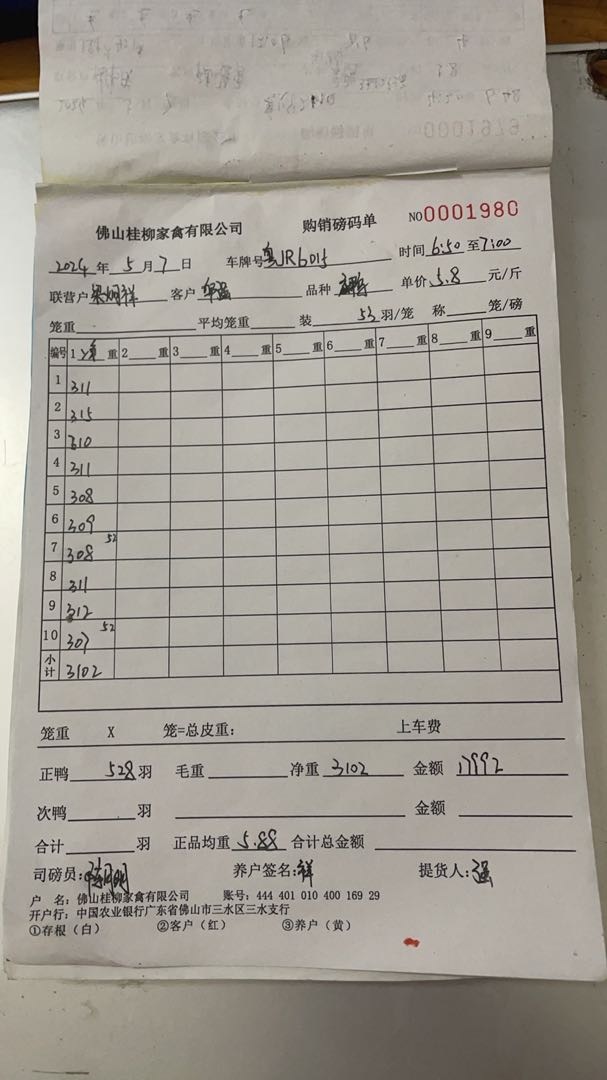 佛山桂柳家禽有限公司 购销磅码单 NO 0001980
2024年 5月 7日 车牌号 粤JR6015 时间 6:50 至 7:00
联营户 客户 华强 品种 单价 5.8 元/斤
笼重 平均笼重 装 53 羽/笼 称 笼/磅
编号 1 净 重 2 重 3 重 4 重 5 重 6 重 7 重 8 重 9 重
1 311
2 315
3 310
4 311
5 308
6 309
7 308 52
8 311
9 312
10 307 52
小计 3102
笼重 X 笼=总皮重: 上车费
正鸭 528 羽 毛重 净重 3102 金额 17992
次鸭 羽 金额
合计 羽 正品均重 5.88 合计总金额
司磅员: 养户签名: 祥 提货人: 强
户 名: 佛山桂柳家禽有限公司 账号: 444 401 010 400 169 29
开户行: 中国农业银行广东省佛山市三水区三水支行
①存根（白） ②客户（红） ③养户（黄）